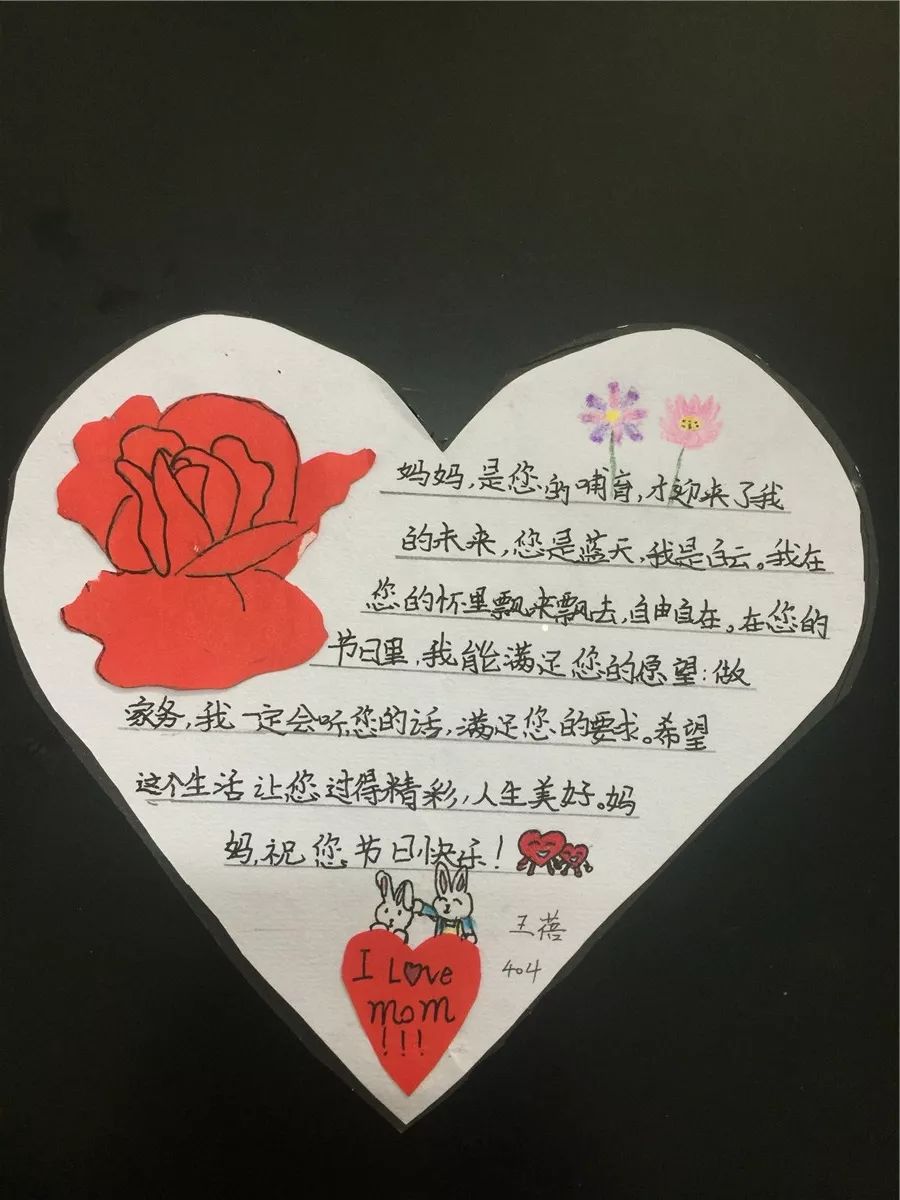 妈妈,是您的哺育,才迎来了我
的未来,您是蓝天,我是白云。我在
您的怀里飘来飘去,自由自在。在您的
节日里,我能满足您的愿望:做
家务,我一定会听您的话,满足您的要求。希望
这个生活让您过得精彩,人生美好。妈
妈,祝您节日快乐!
王蓓
404
I Love
mom
!!!